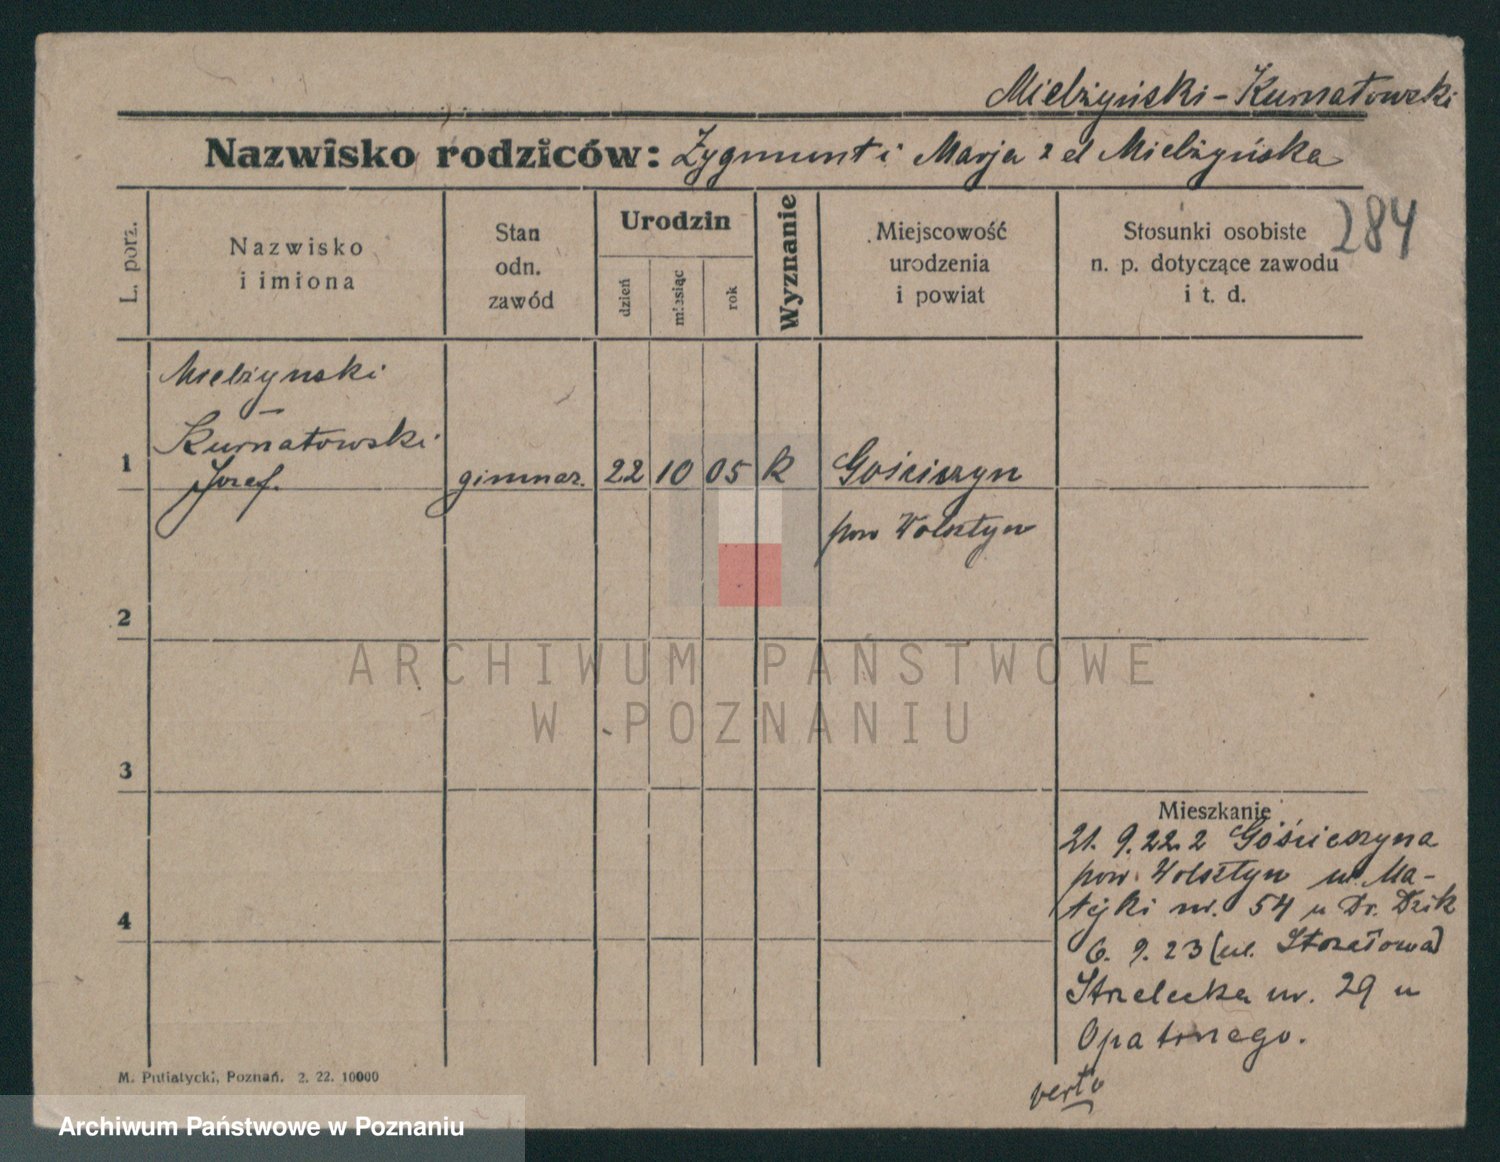 Mielżyński - Kurnatowski
Nazwisko rodziców: Zygmunt i Marja z d Mielżyńska
284
L. porz.
Nazwisko
i imiona
Stan
odn.
zawód
Urodzin
dzień
miesiąc
rok
Wyznanie
Miejscowość
urodzenia
i powiat
Stosunki osobiste
n. p. dotyczące zawodu
i t. d.
Mielżynski
-
Kurnatowski
1 Józef. gimnaz. 22 10 05 k Gościeszyn
pow Wolsztyn
2
ARCHIWUM PAŃSTWOWE
W POZNANIU
3
Mieszkanie
21. 9. 22 z Gościeszyna
pow. Wolsztyn ul. Ma-
tejki nr. 54 u Dr. Dzik
4
6. 9. 23 (ul. Strzałowa)
Strzelecka nr. 29 u
Opatrnego.
verte
M. Putiatycki, Poznań. 2. 22. 10000
Archiwum Państwowe w Poznaniu